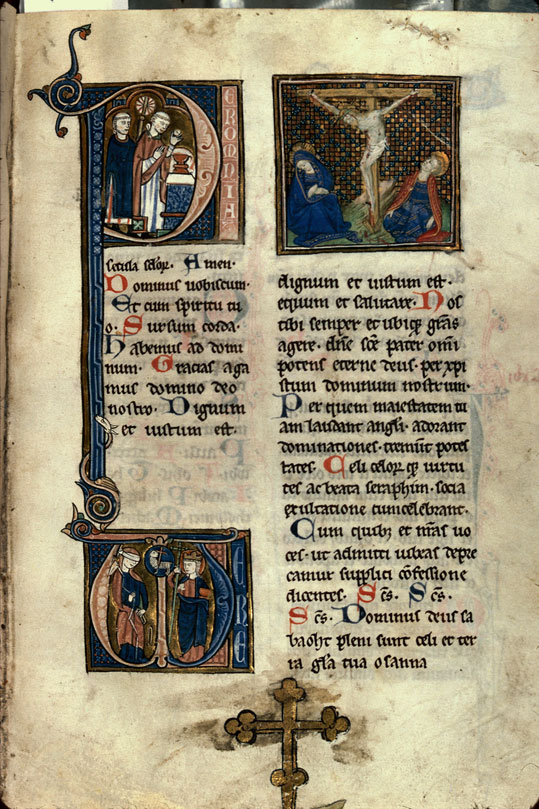 P
EROMNIA
secula sclor̄. Amen.
Dominus uobiscum.
Et cum spiritu tu
o. Sursum corda.
Habemus ad domi
num. Gracias aga
mus domino deo
nostro. Dignum
et iustum est.
U
ERE
dignum et iustum est.
equum et salutare. Nos
tibi semper et ubiqꝫ grās
agere. dn̄e sc̄e pater om̄i
potens eterne deus. per xp̄i
stum dominum nostrum.
Per quem maiestatem tu
am laudant angl̄i. adorant
dominationes. tremūt potes
tates. Celi celorꝫ qꝫ uirtu
tes ac beata seraphim. socia
exultatione concelebrant.
Cum quibꝫ et n̄ras uo
ces. ut admitti iubeas depre
camur supplici cōfessione
dicentes. Sc̄s. Sc̄s.
Sc̄s. Dominus deus sa
baoht pleni sunt celi et ter
ra gl̄a tua osanna